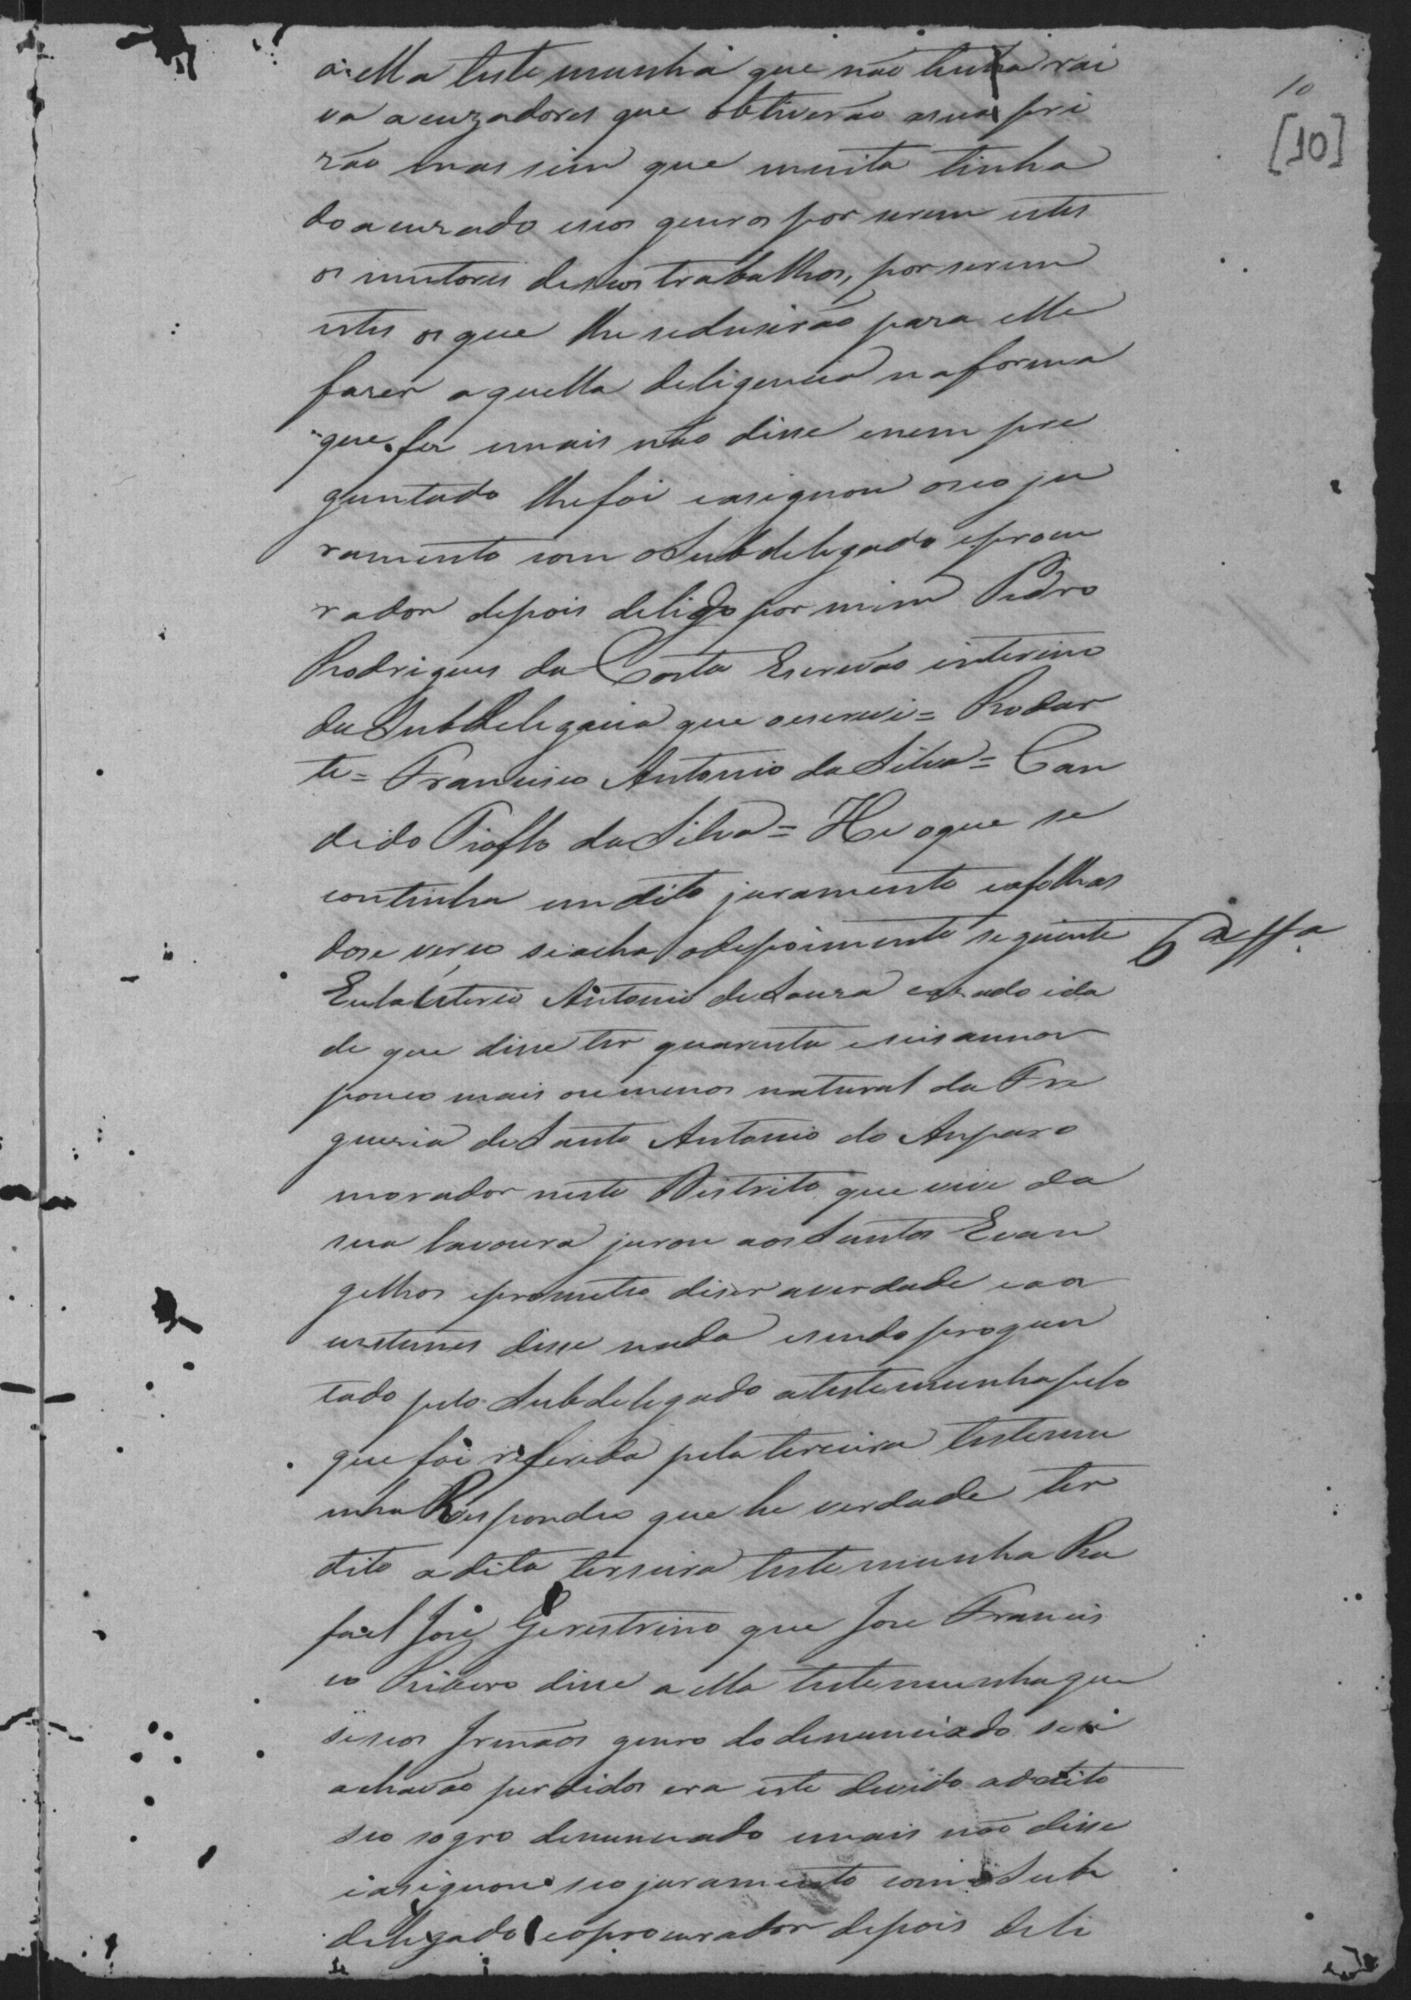 10
[10]
a ella testemunha que não tinha rai
va acuzadores que obtiverão asua pri
zão mas sim que muita tinha
do acuzado eseos genros por serem estes
os mutores deseos trabalhos, por serem
estes os que lhe sedusirão para elle
fazer aquella deligencia na forma
que fez emais não disse enem pre
guntado lhefoi easignou oseo ju
ramento com oSubdelegado eprocu
rador depois delido por mim Pedro
Rodrigues da Costa Escrevão interino
da Subdelegacia que oescrevi = Rodar
te = Francisco Antonio da Silva = Can
dido da Silva = He oque se
continha em dito juramento eafolhas
doze verso seacha odepoimento seguinte
Antonio de Souza cazado ida
de que disse ter quarenta eseis annos
pouco mais oumenos natural da Fre
guezia de Santo Antonio do Amparo
morador neste Distrito que vive da
sua lavoura jurou aos Santos Evan
gelhos eprometeo dizer averdade eaos
custumes disse nada esendo pregun
tado pelo Subdelegado atestemunha pelo
que foi referido pela terceira testemu
nha Respondeo que he verdade ter
dito adita terseira testemunha Ra
fael José que Jose Francis
co Ribeiro disse a ella testemunha que
seseos Irmãos genro do denunciado se
achavão perdidos era este devido aodito
seo sogro denunciado emais não disse
easignou seo juramento como Sub
delegado eoprocurador depois deli